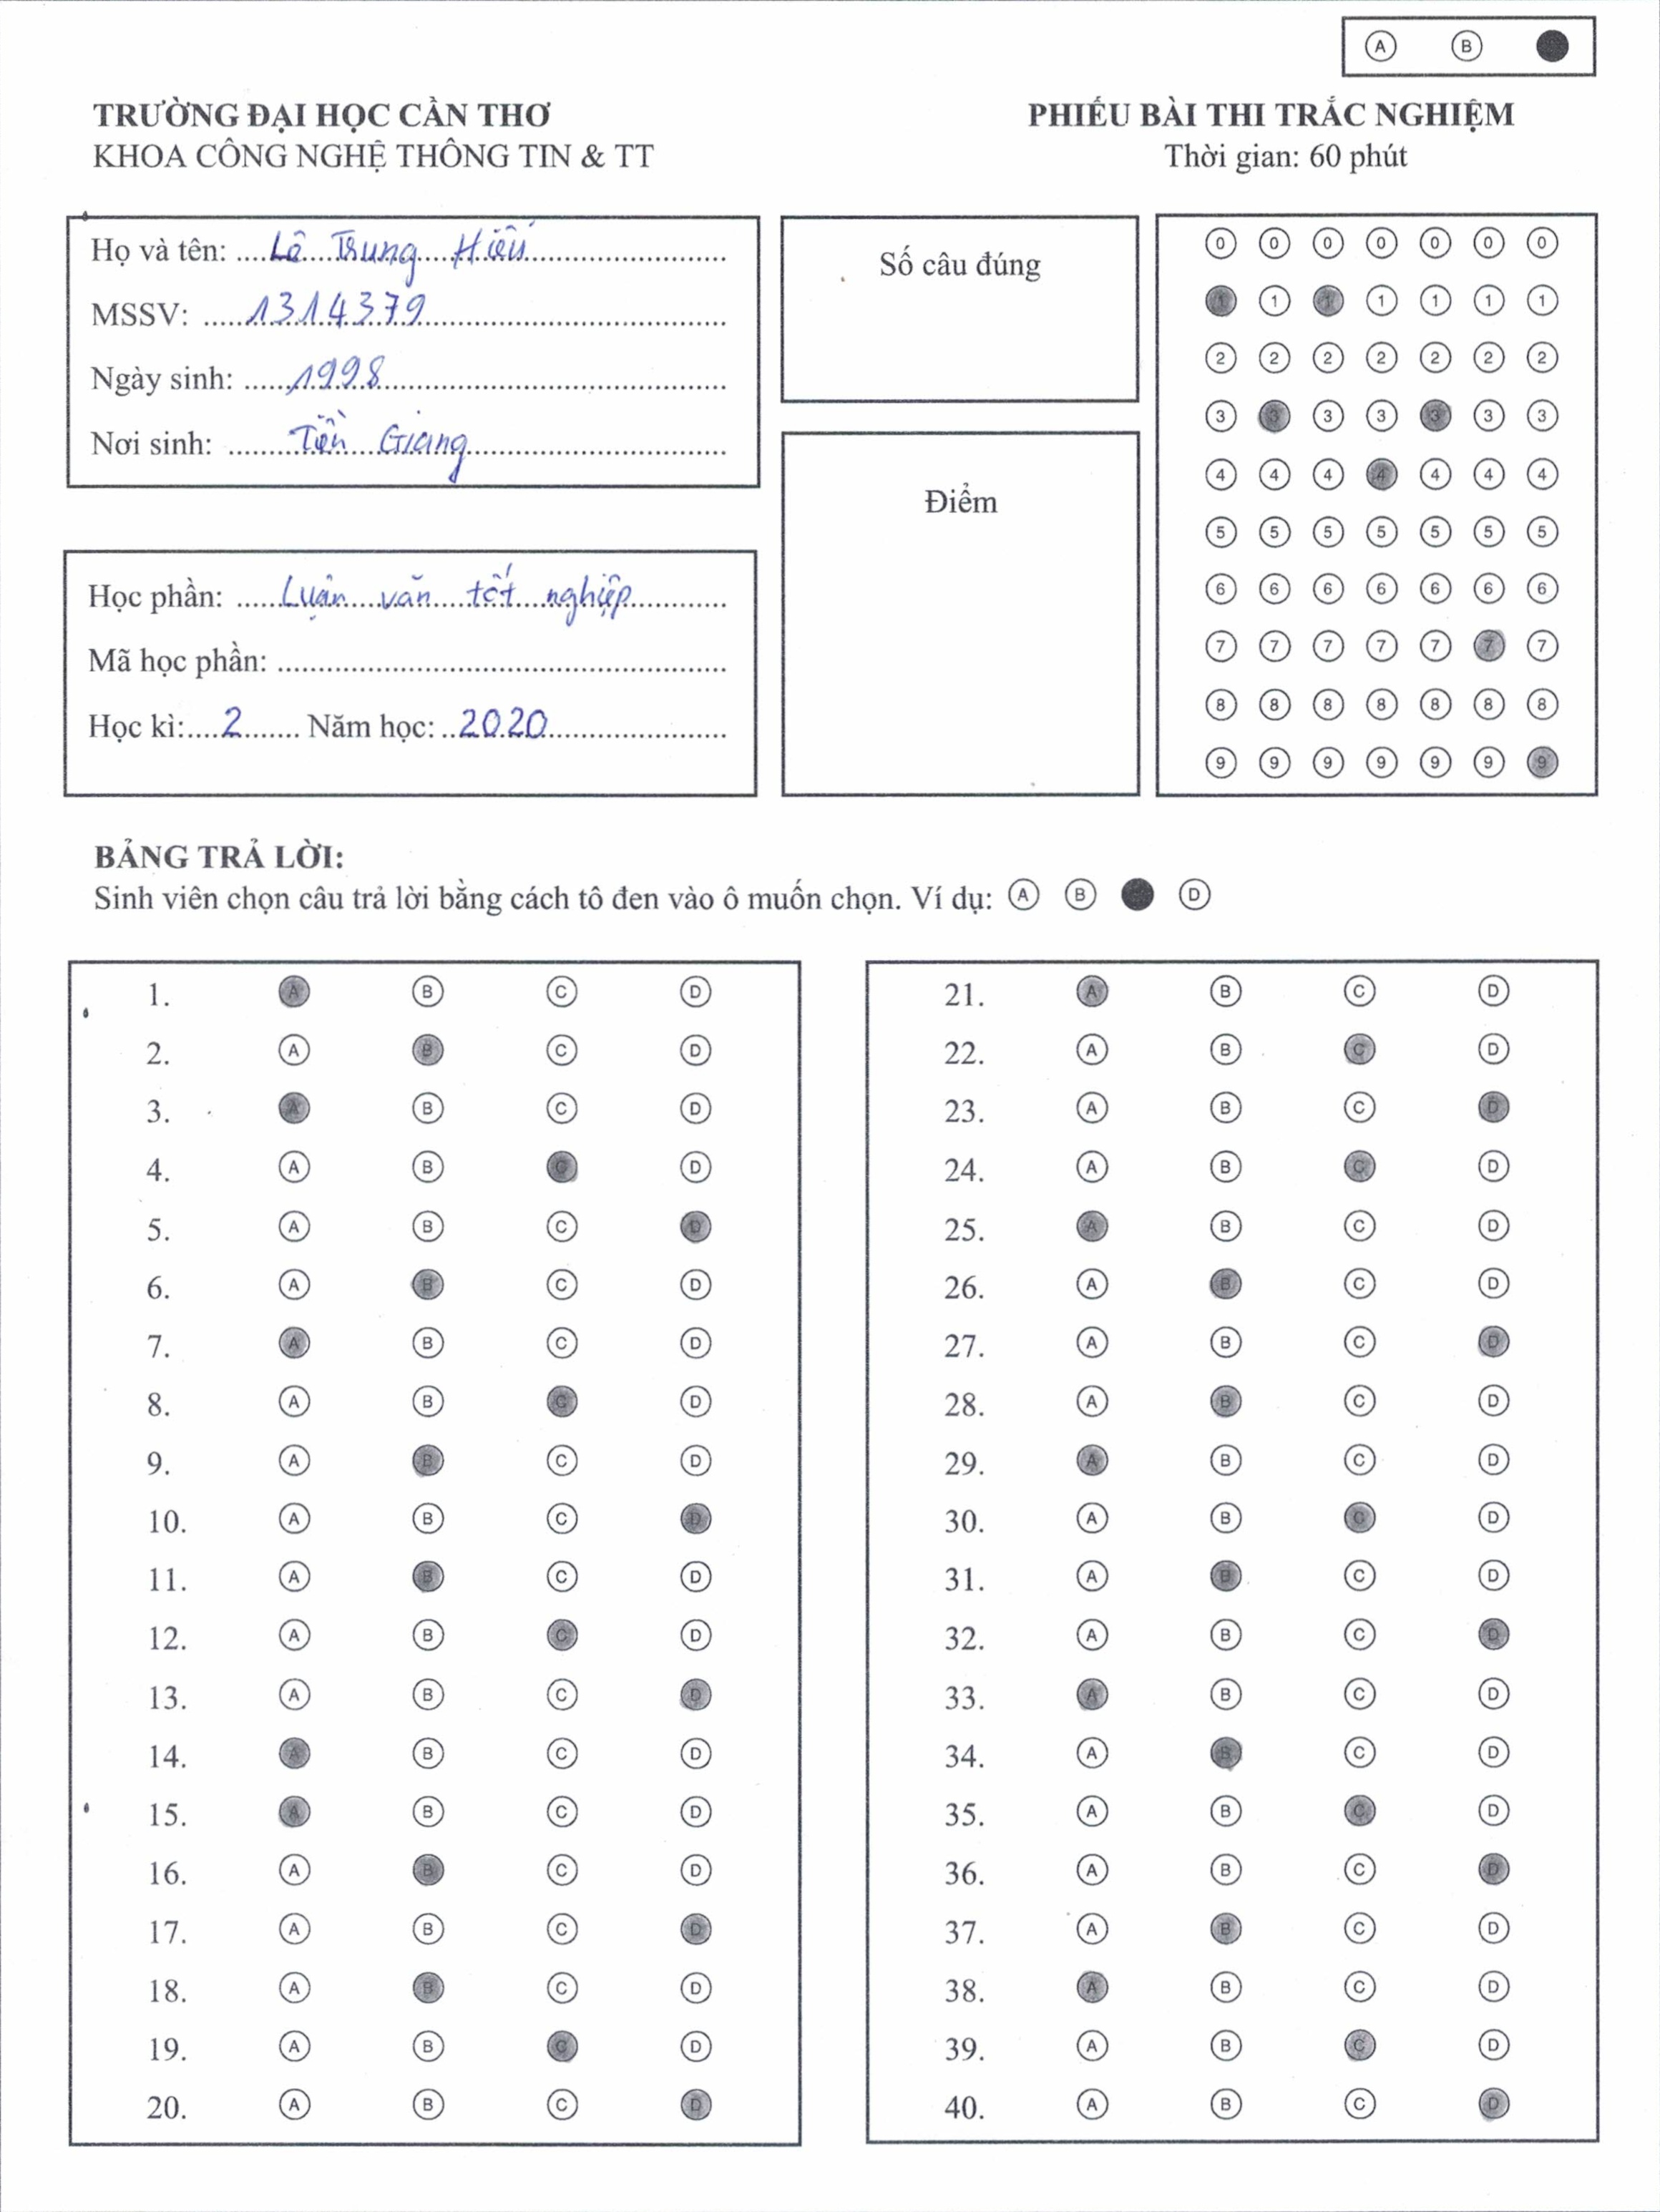 A B
TRƯỜNG ĐẠI HỌC CẦN THƠ
KHOA CÔNG NGHỆ THÔNG TIN & TT
PHIẾU BÀI THI TRẮC NGHIỆM
Thời gian: 60 phút
Họ và tên: ....Lê Trung Hiếu....
MSSV: ....1314379....
Ngày sinh: ....1998....
Nơi sinh: ....Tiền Giang....
Học phần: ....Luận văn tốt nghiệp....
Mã học phần: ........
Học kì:....2....... Năm học: ..2020....
Số câu đúng
Điểm
0 0 0 0 0 0 0
1 1 1 1 1 1 1
2 2 2 2 2 2 2
3 3 3 3 3 3 3
4 4 4 4 4 4 4
5 5 5 5 5 5 5
6 6 6 6 6 6 6
7 7 7 7 7 7 7
8 8 8 8 8 8 8
9 9 9 9 9 9 9
BẢNG TRẢ LỜI:
Sinh viên chọn câu trả lời bằng cách tô đen vào ô muốn chọn. Ví dụ: A B D
1. A B C D
2. A B C D
3. A B C D
4. A B C D
5. A B C D
6. A B C D
7. A B C D
8. A B C D
9. A B C D
10. A B C D
11. A B C D
12. A B C D
13. A B C D
14. A B C D
15. A B C D
16. A B C D
17. A B C D
18. A B C D
19. A B C D
20. A B C D
21. A B C D
22. A B C D
23. A B C D
24. A B C D
25. A B C D
26. A B C D
27. A B C D
28. A B C D
29. A B C D
30. A B C D
31. A B C D
32. A B C D
33. A B C D
34. A B C D
35. A B C D
36. A B C D
37. A B C D
38. A B C D
39. A B C D
40. A B C D